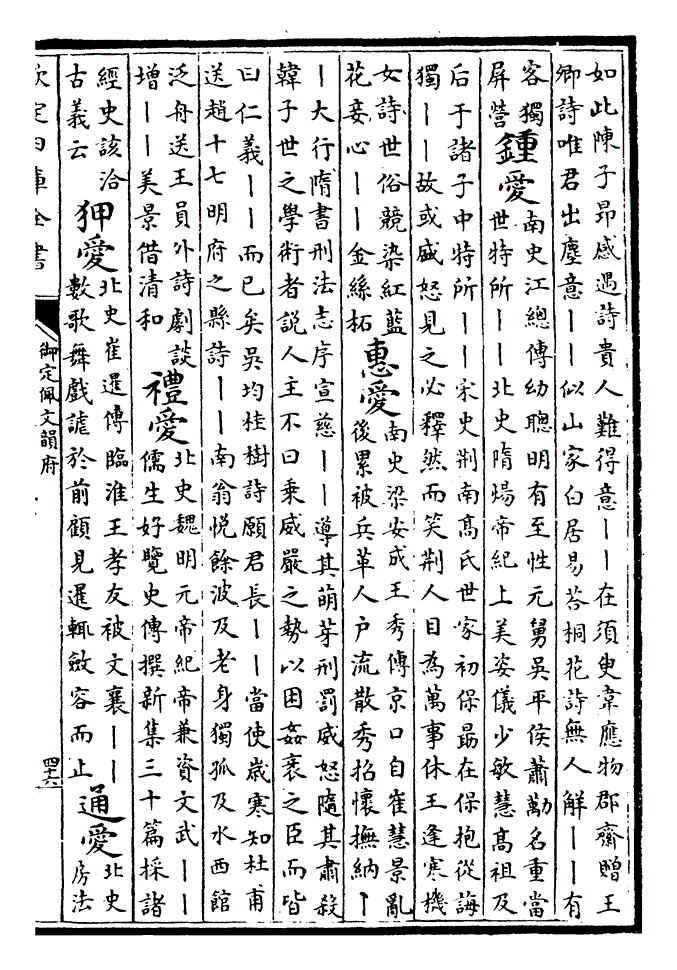 如此陳子昻感遇詩貴人難得意丨丨在須臾韋應物郡齋贈王
卿詩唯君出塵意丨丨似山家白居易荅桐花詩無人解丨丨有
容獨
屏營
鍾愛
南史江總傳幼聰明有至性元舅吳平侯蕭勱名重當
世特所丨丨北史隋煬帝紀上美姿儀少敏慧髙祖及
后于諸子中特所丨丨宋史荆南髙氏世家初保勗在保抱從誨
獨丨丨故或盛怒見之必釋然而笑荆人目為萬事休王逢寒機
女詩世俗競染紅藍
花妾心丨丨金絲柘
惠愛
南史梁安成王秀傳京口自崔慧景亂
後累被兵革人户流散秀招懷撫納丨
丨大行隋書刑法志序宣慈丨丨導其萌芽刑罰威怒隨其肅殺
韓子世之學術者説人主不曰乗威嚴之勢以困姦衺之臣而皆
曰仁義丨丨而已矣吳均桂樹詩願君長丨丨當使嵗寒知杜甫
送趙十七明府之縣詩丨丨南翁悦餘波及老身獨孤及水西館
泛舟送王員外詩劇談
增丨丨美景借清和
禮愛
北史魏明元帝紀帝兼資文武丨丨
儒生好覽史傳撰新集三十篇採諸
經史該洽
古義云
狎愛
北史崔暹傳臨淮王孝友被文襄丨丨
數歌舞戲謔於前顧見暹輒斂容而止
通愛
北史
房法
欽定四庫全書
御定佩文韻府
四十六